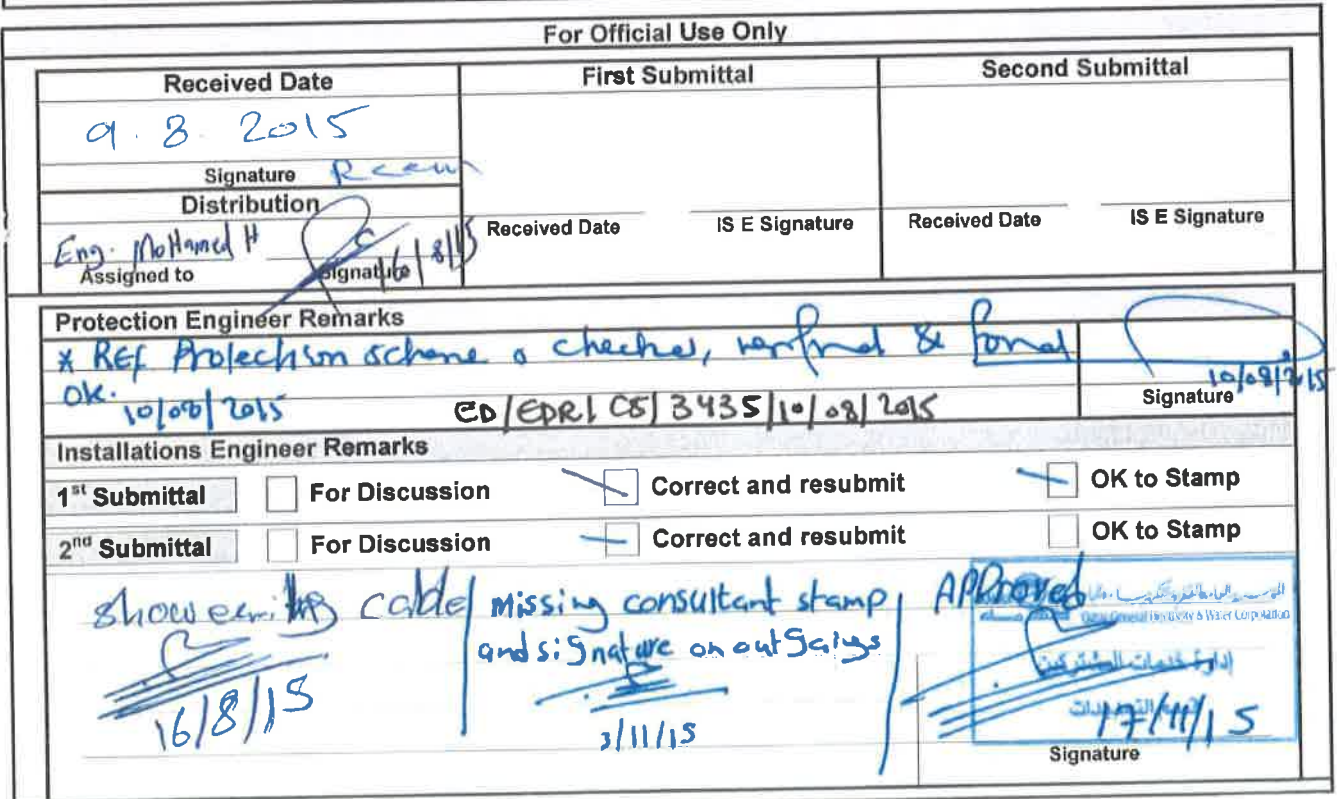 For Official Use Only
Received Date
First Submittal
Second Submittal
9.8.2015
Signature
Distribution
Eng. Mohamed H
/8/15
Assigned to
Signature
Received Date
IS E Signature
Received Date
IS E Signature
Protection Engineer Remarks
* REF Protection scheme checked, & found
OK.
10/08/2015
CD/EDR/CS/3435/10/08/2015
10/08/2015
Signature
Installations Engineer Remarks
1st Submittal
For Discussion
Correct and resubmit
OK to Stamp
2nd Submittal
For Discussion
Correct and resubmit
OK to Stamp
Show cable
16/8/15
Missing consultant stamp
and signature on outgoings
3/11/15
Approved
Qatar General Electricity & Water Corporation
إدارة خدمات المشتركين
17/11/15
Signature